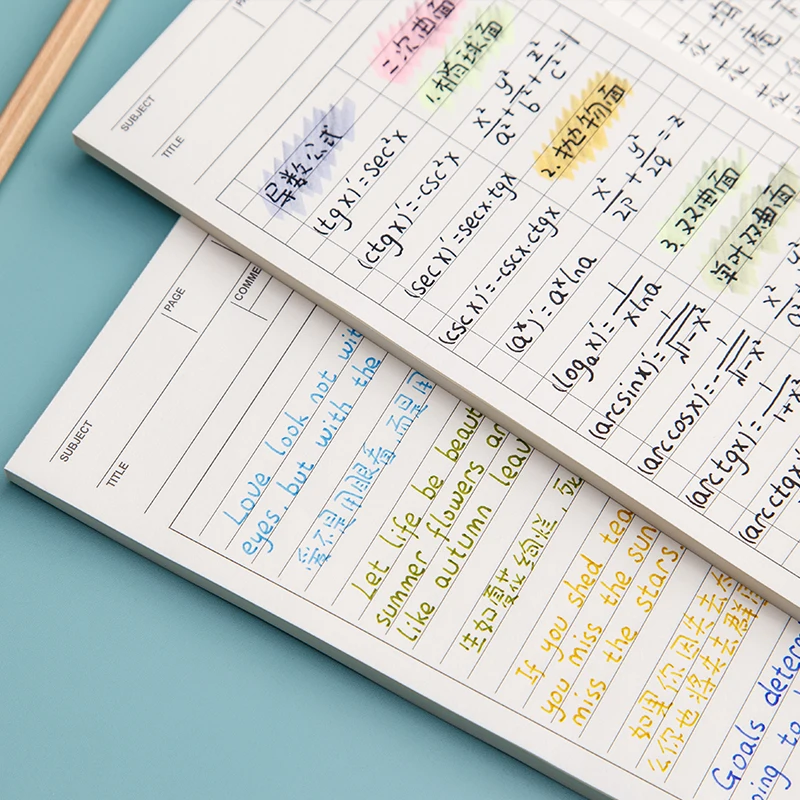 SUBJECT
TITLE
导数公式
(tgx)'=sec²x
(ctgx)'=-csc²x
(secx)'=secx·tgx
(cscx)'=-cscx·ctgx
(aˣ)'=aˣlna
(logₐx)'=1/xlna
(arcsinx)'=1/√1-x²
(arccosx)'=-1/√1-x²
(arctgx)'=1/1+x²
(arcctgx)'
二次曲面
1.椭球面
x²/a²+y²/b²+z²/c²=1
2.抛物面
x²/2p+y²/2q=z
3.双曲面
单叶双曲面
SUBJECT
PAGE
TITLE
COMME
Love look not wit
eyes, but with the
爱不是用眼看,而是用
Let life be beaut
summer flowers an
like autumn leav
生如夏花绚烂,死
If you shed tea
you miss the sun
miss the stars.
如果你因失去
么你也将失去群
Goals determ
oing to